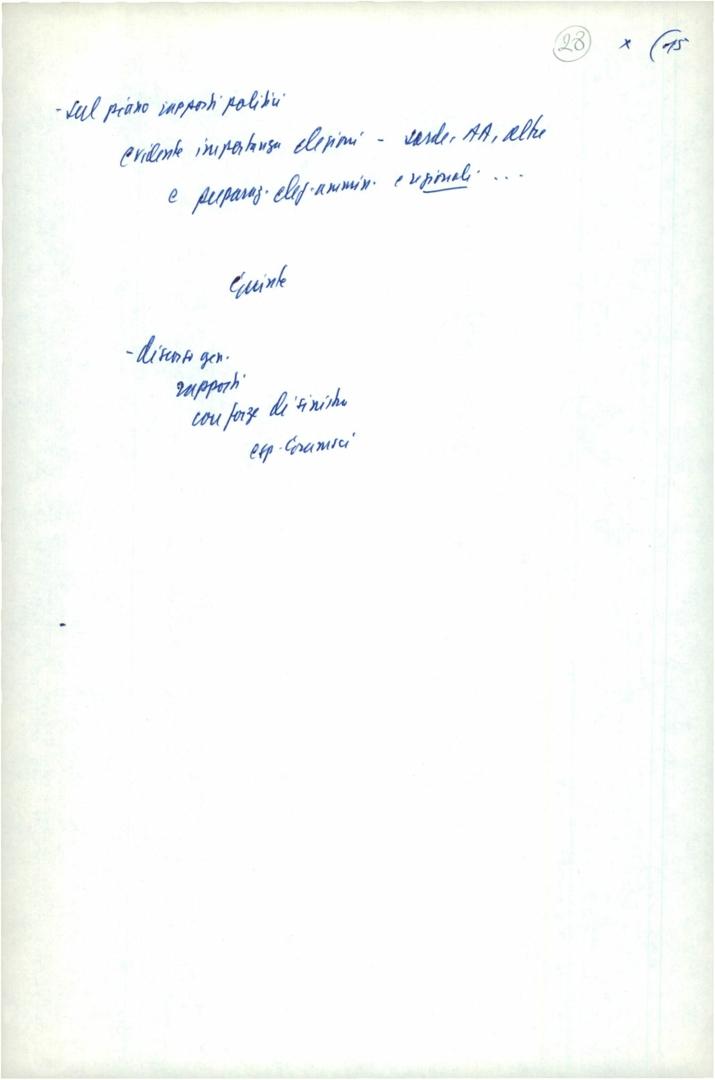 28 x (15
- sul piano rapporti politici
evidente importanza elezioni - sarde, AA, altre
e preparaz. elez. ammin. e regionali ...
- discorso gen.
rapporti
con forze di sinistra
esp. Gramsci